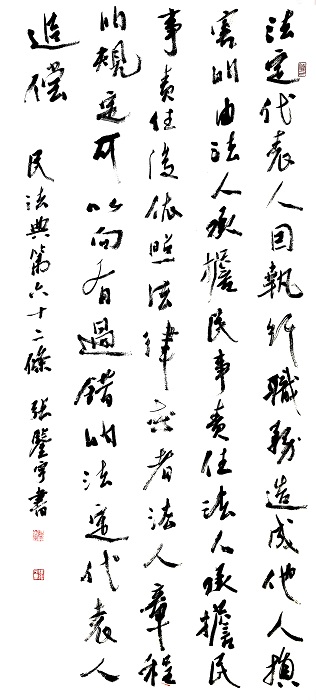 法定代表人因執行職務造成他人損
害的由法人承擔民事責任法人承擔民
事責任後依照法律或者法人章程
的規定可以向有過錯的法定代表人
追偿
民法典第六十二條 張鑒宇書